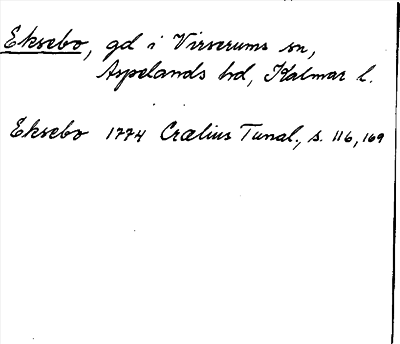 Eksebo, gd i Virserums sn,
Aspelands hd, Kalmar l.
Eksebo 1774 Crælius Tunal., s. 116, 169